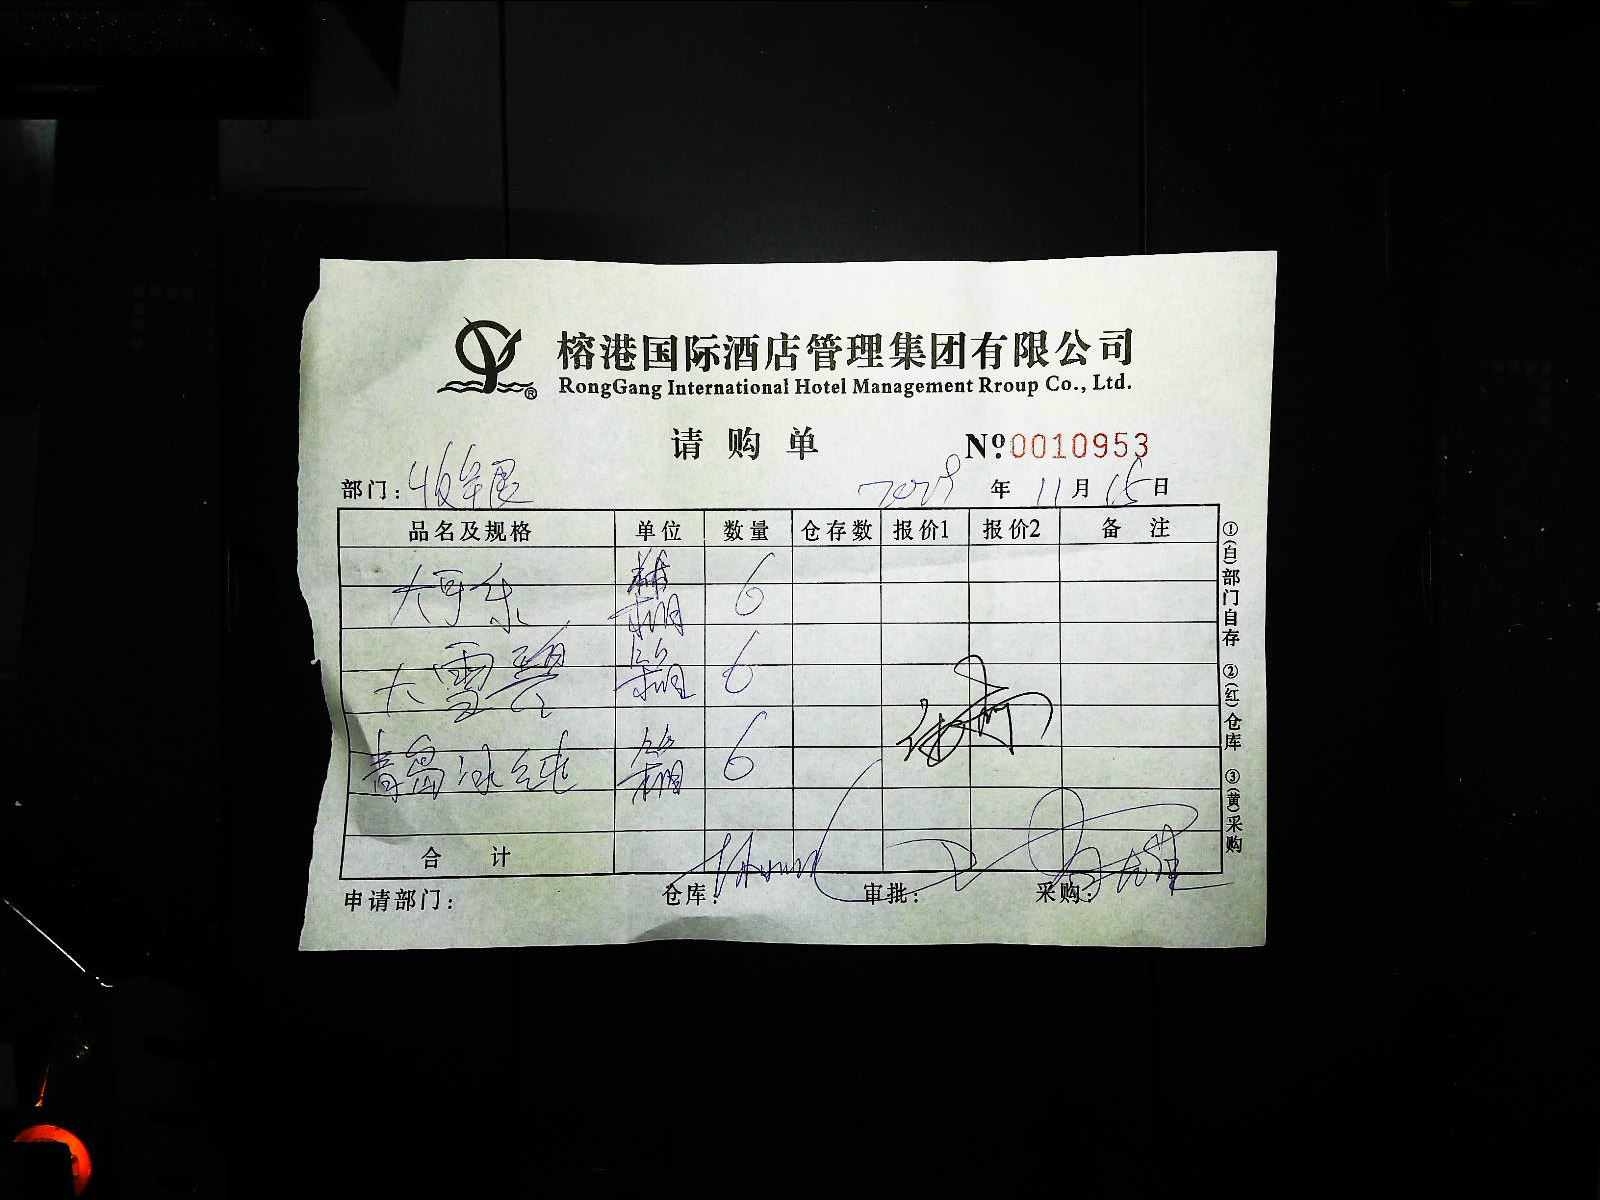 榕港国际酒店管理集团有限公司
RongGang International Hotel Management Rroup Co., Ltd.
请购单 Nº.0010953
部门: 年 11 月 15 日
品名及规格 单位 数量 仓存数 报价1 报价2 备注
大可乐 箱 6
大雪碧 箱 6
青岛冰纯 箱 6
合计
申请部门: 仓库: 审批: 采购:
①(白)部门自存 ②(红)仓库 ③(黄)采购